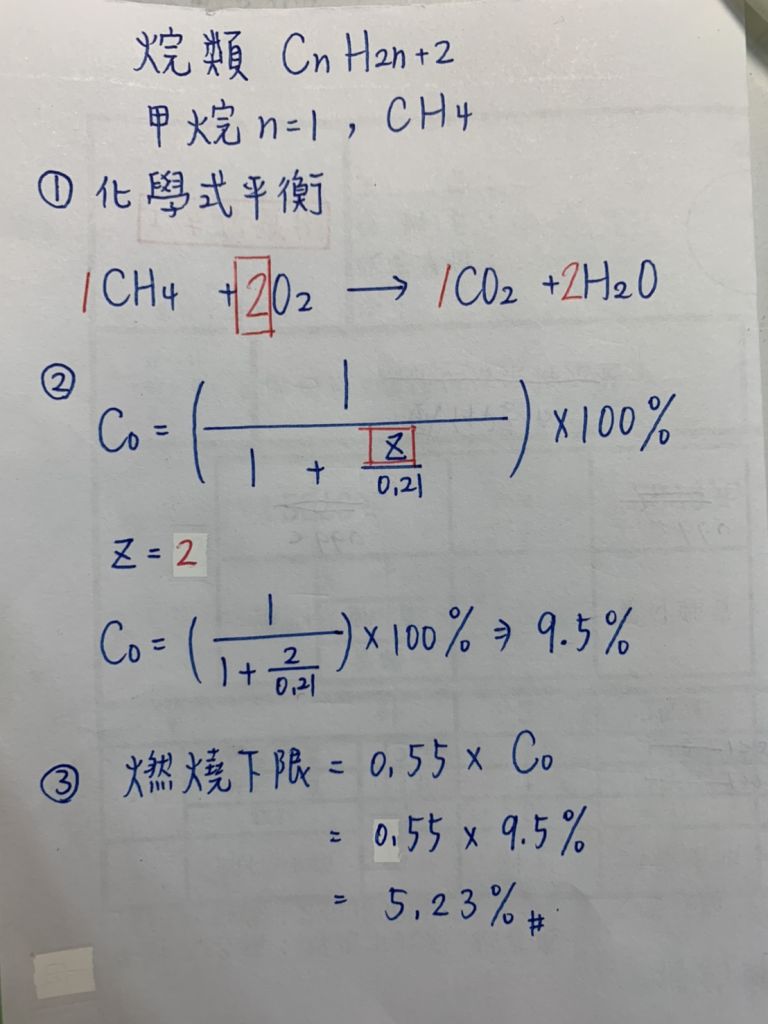 烷類 CnH2n+2
甲烷 n=1 , CH4
① 化學式平衡
1CH4 + 2O2 → 1CO2 + 2H2O
②
C0 = ( 1 / ( 1 + Z / 0.21 ) ) × 100%
Z = 2
C0 = ( 1 / ( 1 + 2 / 0.21 ) ) × 100% ⇒ 9.5%
③ 燃燒下限 = 0.55 × C0
= 0.55 × 9.5%
= 5.23% #